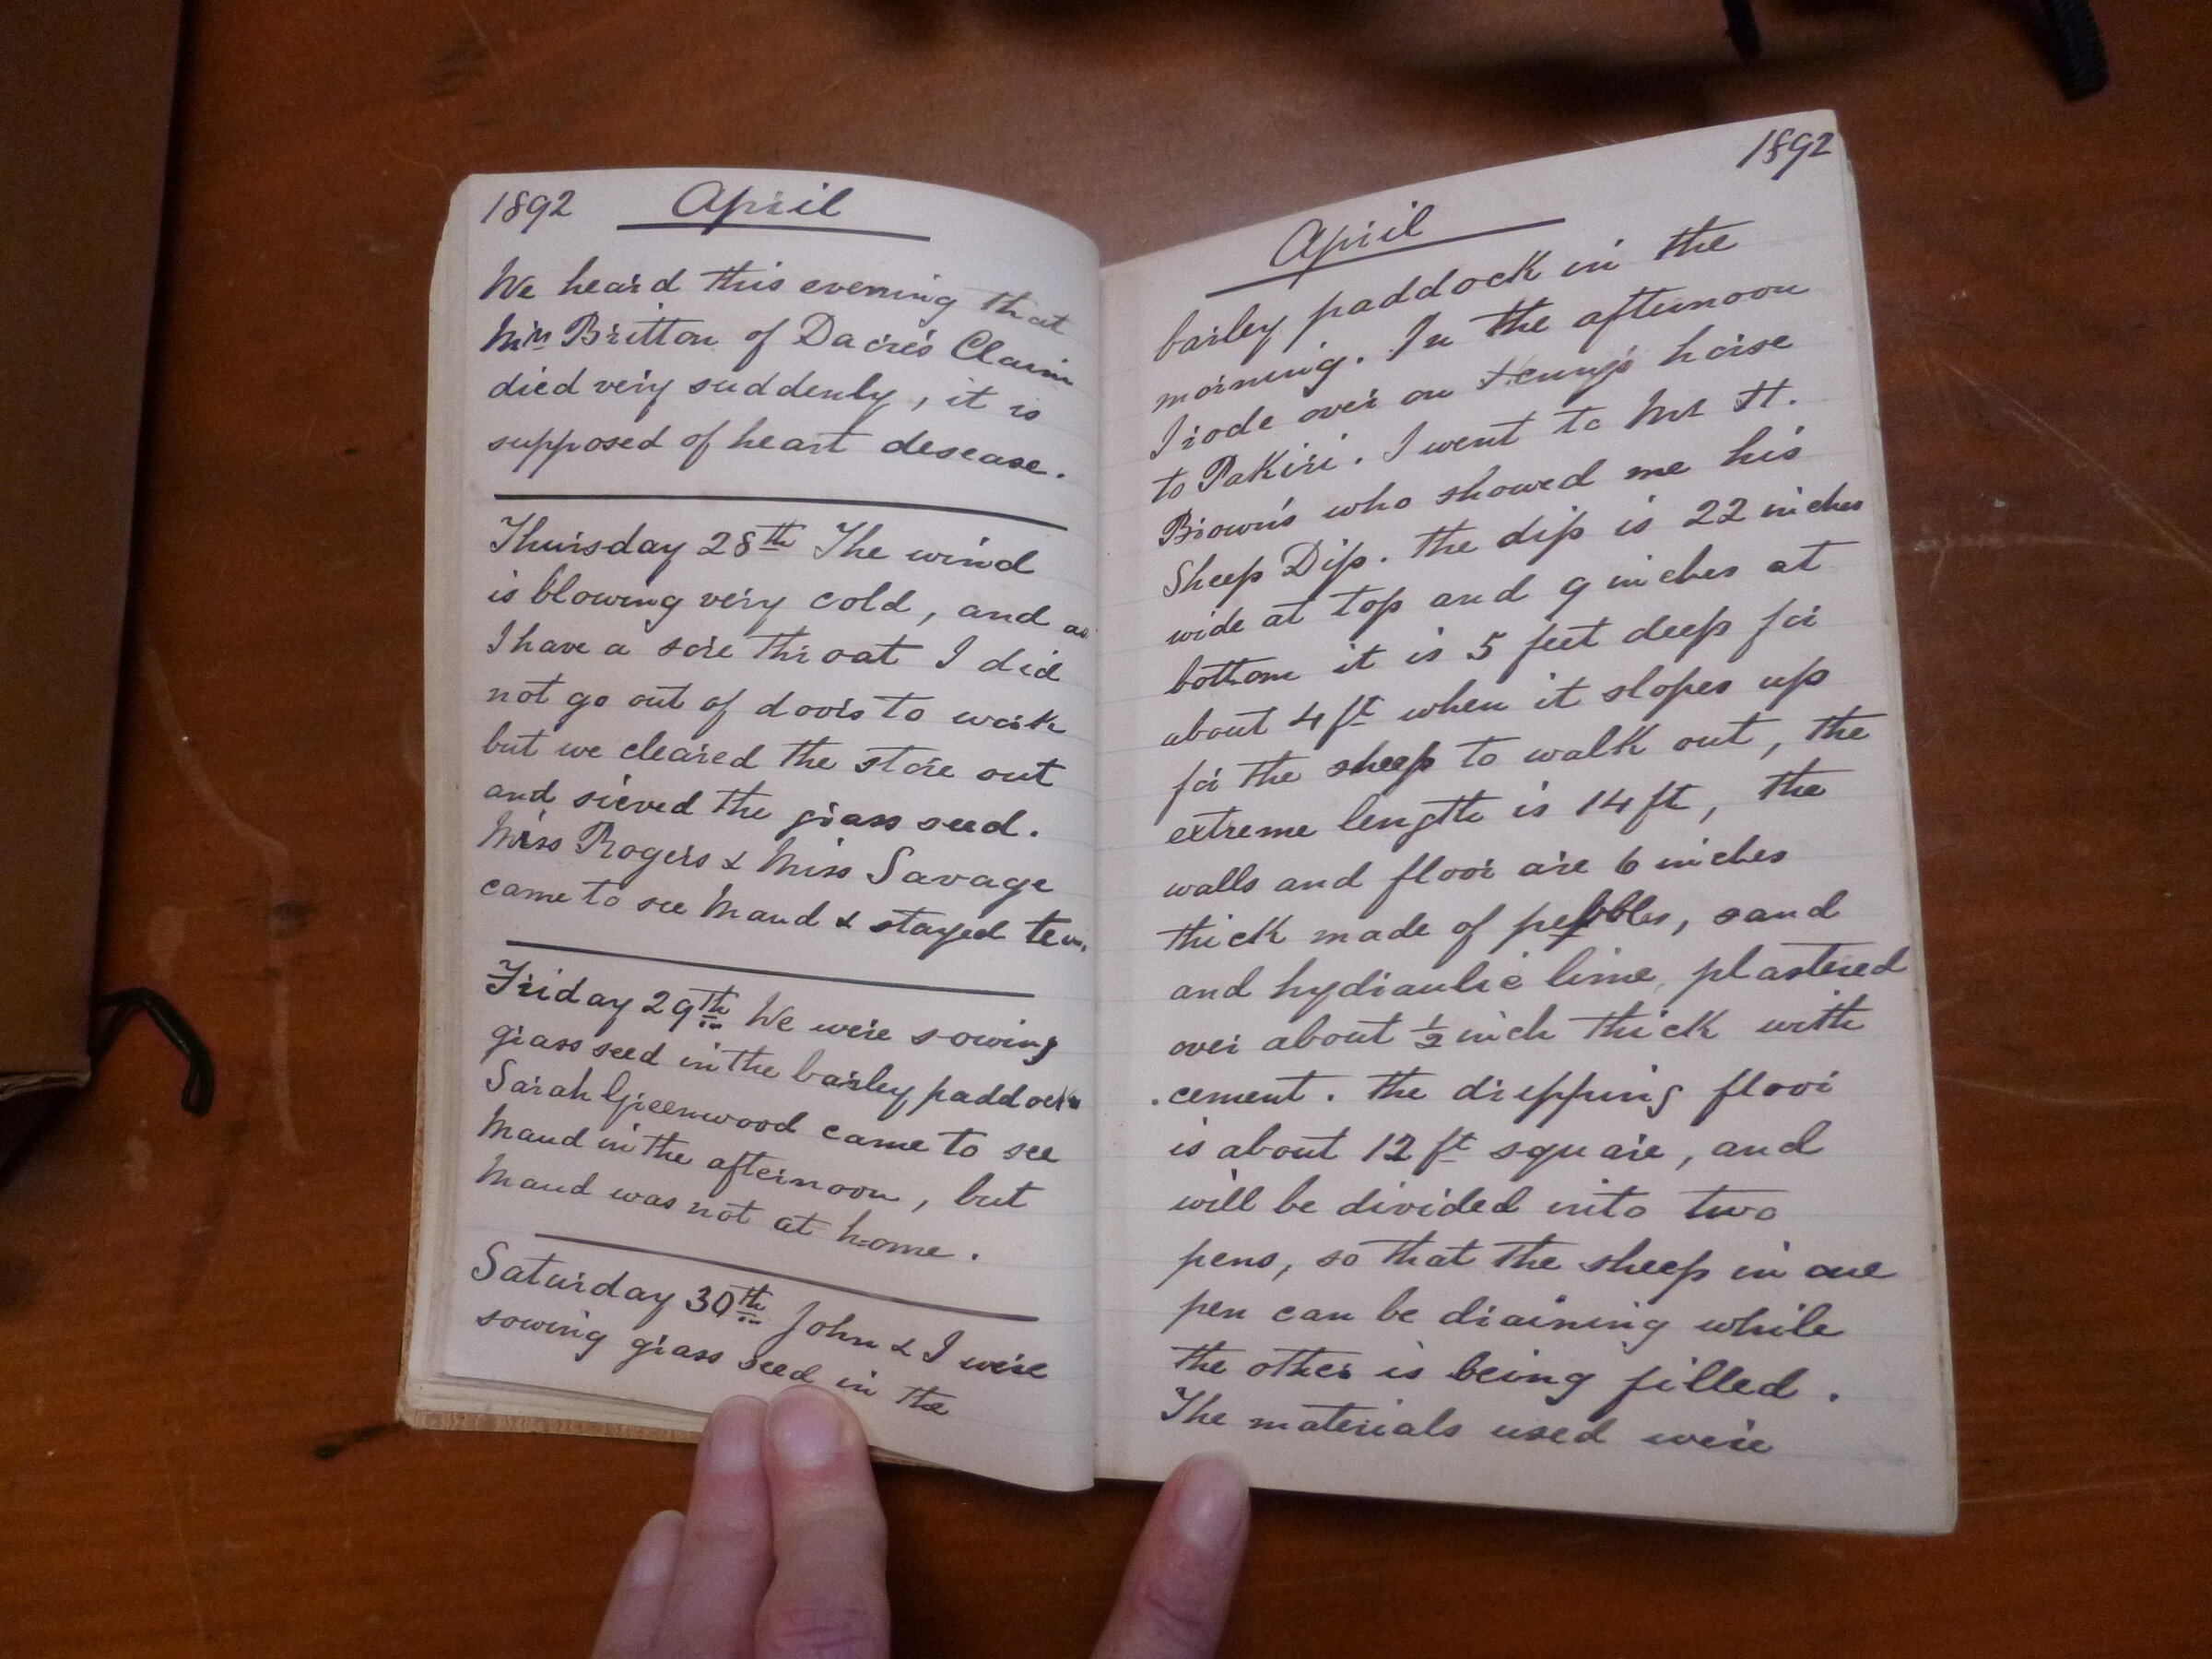 1892 April
We heard this evening that
Mrs Britton of Dacre's Claim
died very suddenly, it is
supposed of heart desease.
Thursday 28th The wind
is blowing very cold, and as
I have a sore throat I did
not go out of doors to work
but we cleared the store out
and sieved the grass seed.
Miss Rogers & Miss Savage
came to see Maud & stayed tea.
Friday 29th We were sowing
grass seed in the barley paddock
Sarah Greenwood came to see
Maud in the afternoon, but
Maud was not at home.
Saturday 30th John & I were
sowing grass seed in the
1892
April
barley paddock in the
morning. In the afternoon
I rode over on Henry's horse
to Pakiri. I went to Mr H.
Brown's who showed me his
Sheep Dip. the dip is 22 inches
wide at top and 9 inches at
bottom it is 5 feet deep for
about 4 ft when it slopes up
for the sheep to walk out, the
extreme length is 14 ft, the
walls and floor are 6 inches
thick made of pebbles, sand
and hydraulic lime, plastered
over about ½ inch thick with
cement. the dripping floor
is about 12 ft square, and
will be divided into two
pens, so that the sheep in one
pen can be draining while
the other is being filled.
The materials used were